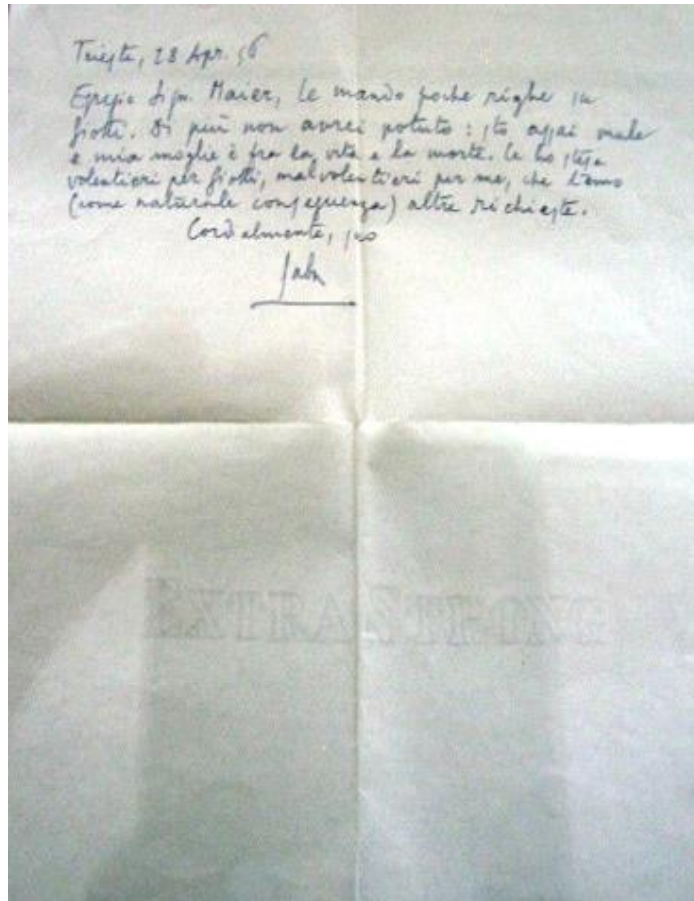 Trieste, 28 Apr. 56
Egregio Sign. Maier, le mando poche righe su
Giotti. Di più non avrei potuto: sto assai male
e mia moglie è fra la vita e la morte. Le ho stese
volentieri per Giotti, malvolentieri per me, che temo
(come naturale conseguenza) altre richieste.
Cordialmente, suo
Saba
EXTRA STRONG